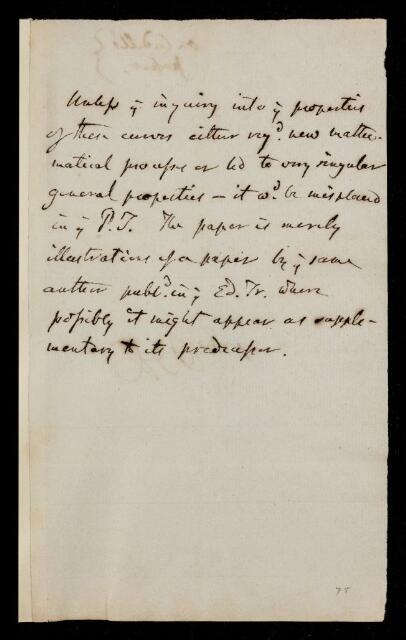 Unless ye inquiry into ye properties
of these curves either reqd. new mathe-
matical process or led to very singular
general properties – it wd. be misplaced
in ye P.T. The paper is merely
illustrations of a paper by ye same
author publd. in ye Ed. Tr. where
possibly it might appear as supple-
mentary to its predecessor.
75